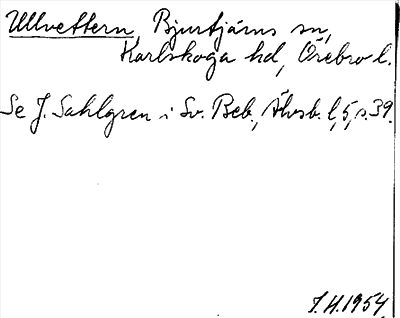 Ullvettern, Bjurtjärns sn,
Karlskoga hd, Örebro l.
Se J. Sahlgren i Sv. Beb., Älvsb. l, 5, s. 39.
J.H. 1954.